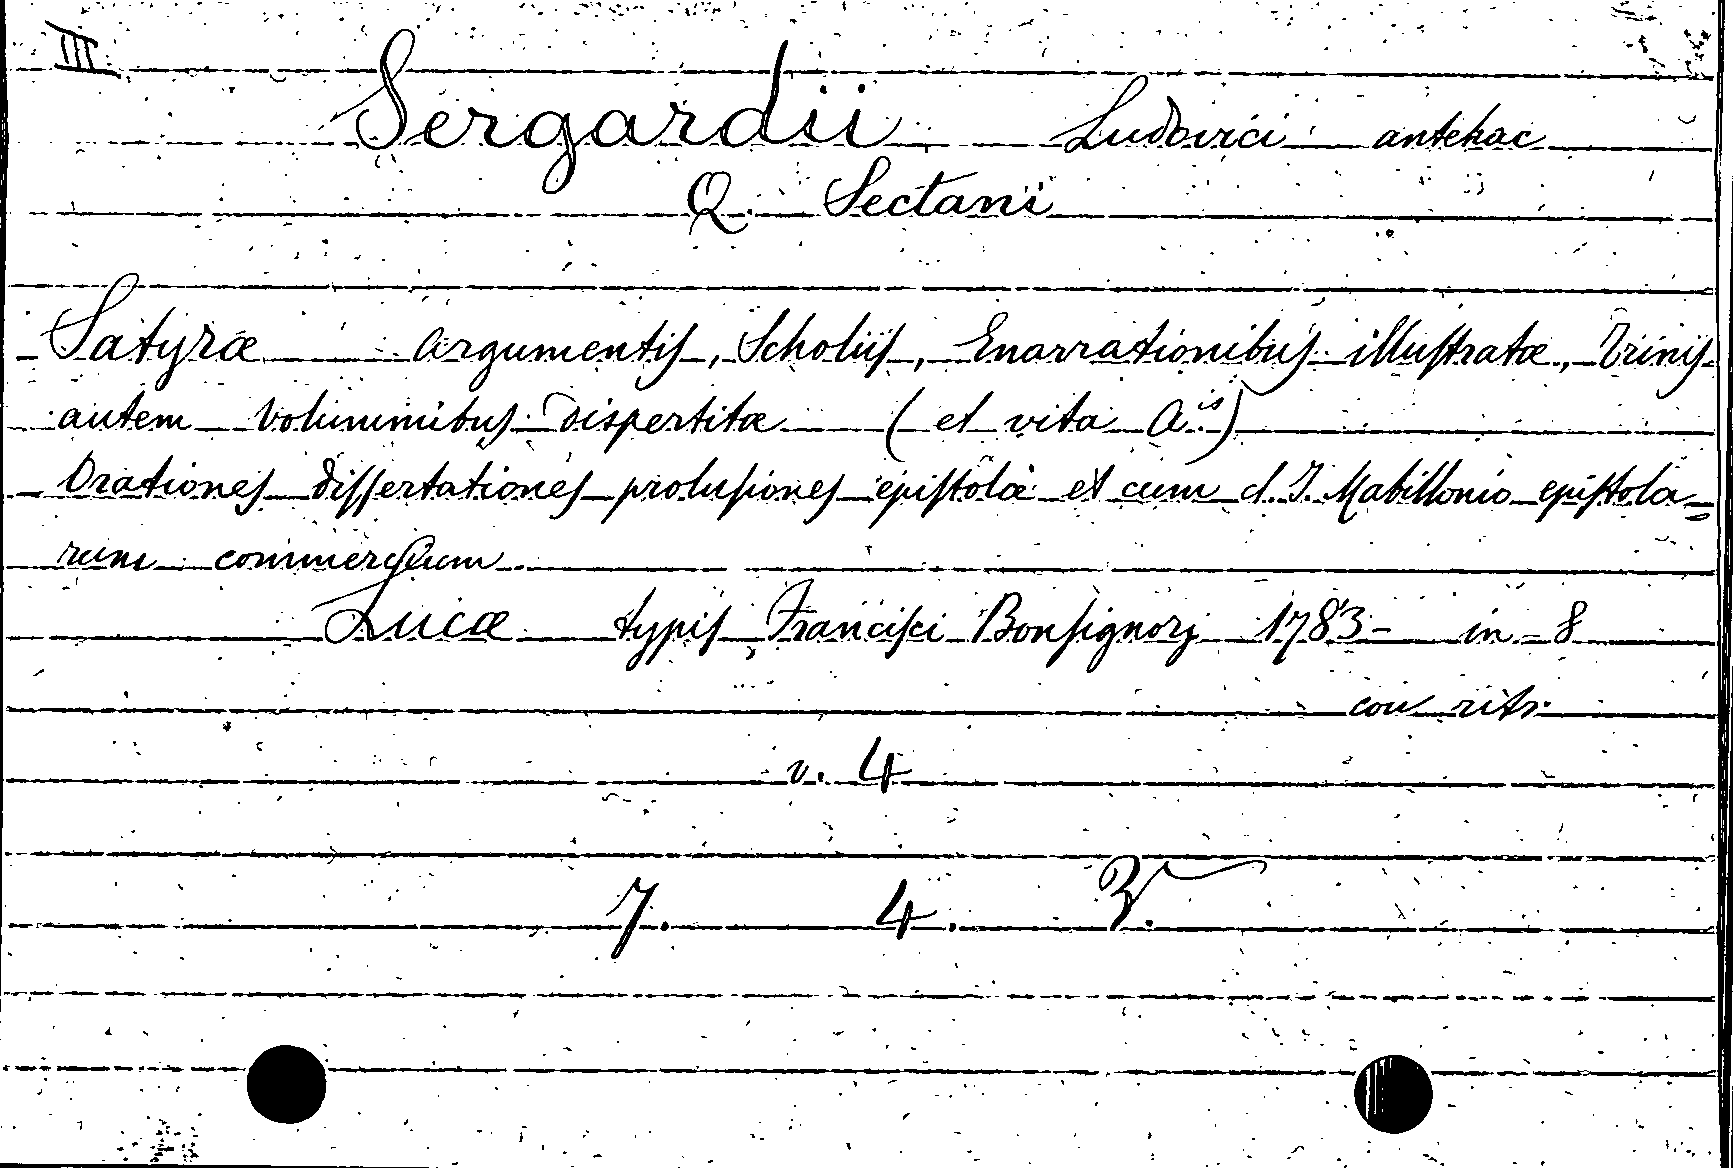 III
Sergardii Ludovici antehac
Q. Sectani
Satyræ Argumentis, Scholiis, Enarrationibus illustratæ, Trinis
autem voluminibus dispertitæ (et vita A.is)
Orationes dissertationes prolusiones epistolæ et cum d. J. Mabillonio epistola=
rum commercium
Lucæ typis Francisci Bonsignorj 1783- in 8
con ritr.
v. 4
7. 4. V.